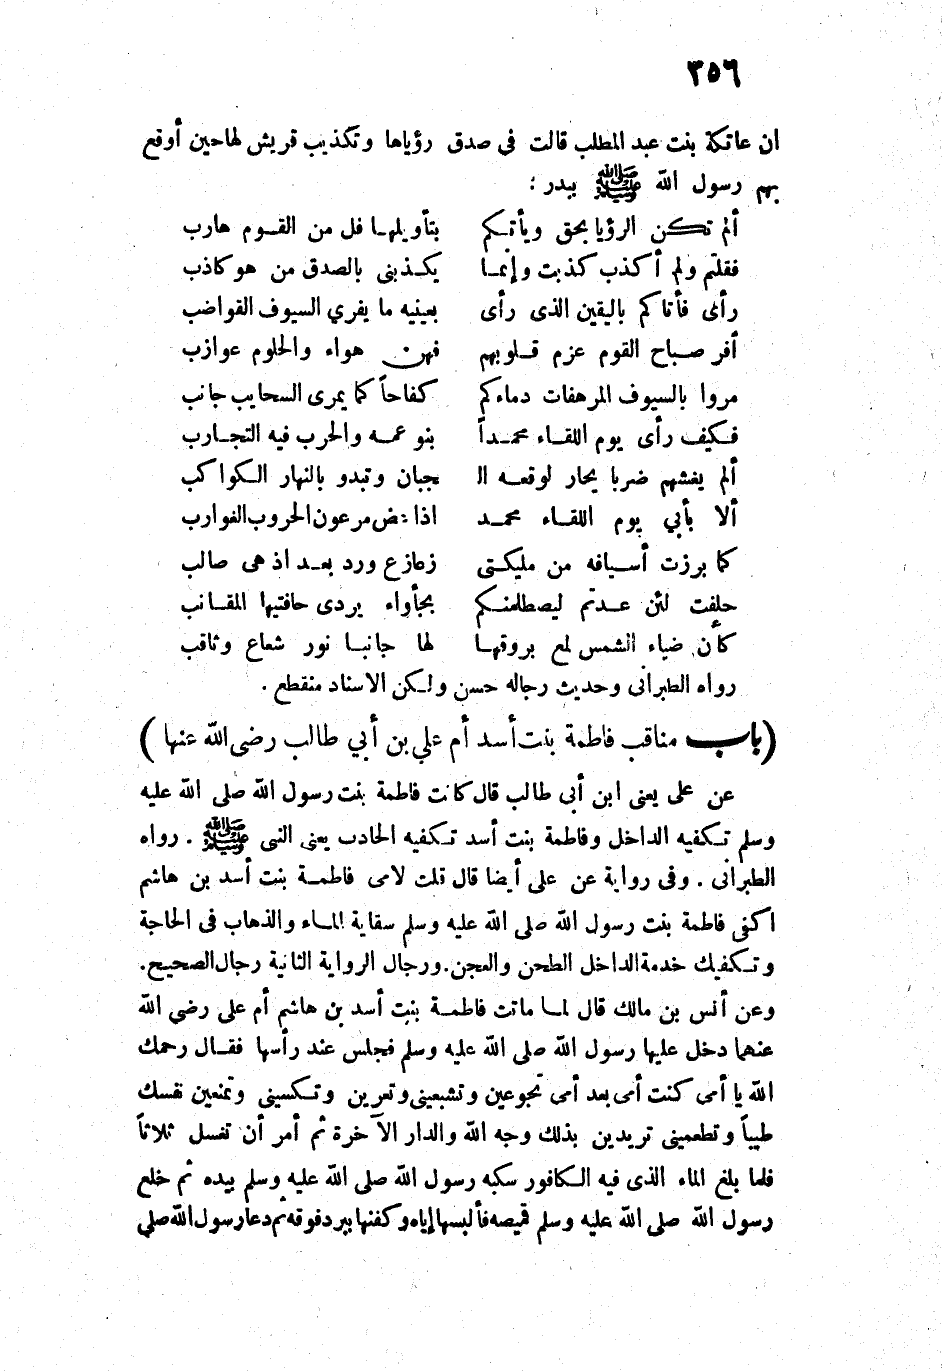 ٣٥٦
ان عاتكة بنت عبد المطلب قالت في صدق رؤياها وتكذيب قريش لها حين أوقع
بهم رسول الله ﷺ ببدر :
ألم تكن الرؤيا بحق ويأتكم بتأويلها فل من القوم هارب
فقلتم ولم أكذب كذبت وإنما يكذبني بالصدق من هو كاذب
رأى فأتاكم باليقين الذي رأى بعينيه ما يفري السيوف القواضب
أفر صباح القوم عزم قلوبهم فهن هواء والحلوم عوازب
مروا بالسيوف المرهفات دماءكم كفاحاً كما يمرى السحايب جانب
فكيف رأى يوم اللقاء محمداً بنو عمه والحرب فيه التجارب
ألم يغشهم ضربا يحار لوقعه ال جبان وتبدو بالنهار الكواكب
ألا بأبي يوم اللقاء محمد اذا عض من عون الحروب الغوارب
كما برزت أسيافه من مليكتي زعازع ورد بعد اذ هى صالب
حلفت لئن عدتم ليصطلمنكم بجأواء يردى حافتيها المقانب
كأن ضياء الشمس لمع بروقها لها جانبا نور شعاع وثاقب
رواه الطبرانى وحديث رجاله حسن ولكن الاسناد منقطع .
( باب مناقب فاطمة بنت أسد أم علي بن أبي طالب رضى الله عنها )
عن على يعنى ابن أبى طالب قال كانت فاطمة بنت رسول الله صلى الله عليه
وسلم تكفيه الداخل وفاطمة بنت أسد تكفيه الخادب يعنى النبى ﷺ . رواه
الطبرانى . وفى رواية عن على أيضا قال قلت لامى فاطمة بنت أسد بن هاشم
اكفى فاطمة بنت رسول الله صلى الله عليه وسلم سقاية الماء والذهاب فى الحاجة
وتكفيك خدمة الداخل الطحن والعجن . ورجال الرواية الثانية رجال الصحيح .
وعن أنس بن مالك قال لما ماتت فاطمة بنت أسد بن هاشم أم على رضي الله
عنهما دخل عليها رسول الله صلى الله عليه وسلم فجلس عند رأسها فقال رحمك
الله يا أمى كنت أمى بعد أمى تجوعين وتشبعينى وتعرين وتكسينى وتمنعين نفسك
طيباً وتطعمينى تريدين بذلك وجه الله والدار الآخرة ثم أمر أن تغسل ثلاثاً
فلما بلغ الماء الذى فيه الكافور سكبه رسول الله صلى الله عليه وسلم بيده ثم خلع
رسول الله صلى الله عليه وسلم قميصه فألبسها إياه وكفنها ببرد فوقه ثم دعا رسول الله صلى